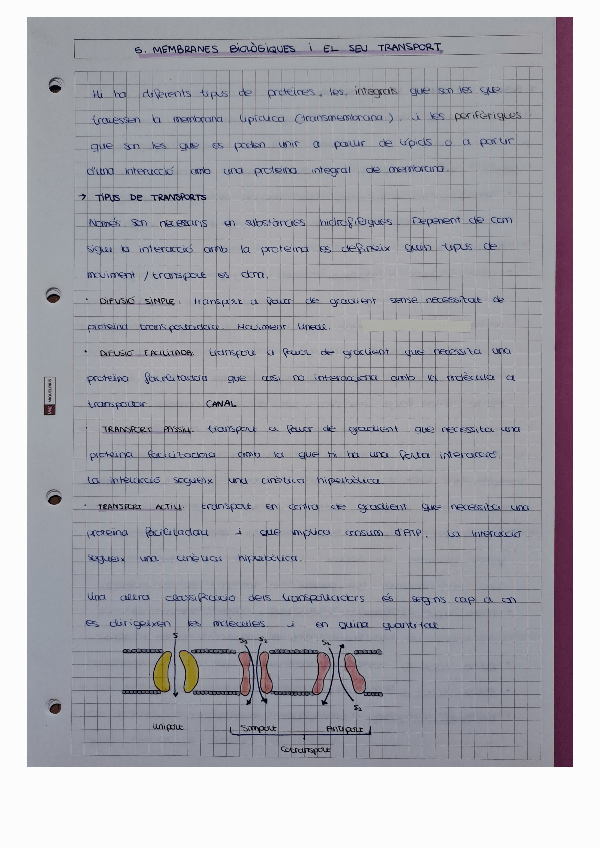 5. MEMBRANES BIOLÒGIQUES i EL SEU TRANSPORT
Hi ha diferents tipus de proteïnes, les integrals que son les que
travessen la membrana lipídica (transmembrana) i les perifèriques
que son les que es poden unir a partir de lípids o a partir
d'una interacció amb una proteïna integral de membrana.
→ TIPUS DE TRANSPORTS
Només són necessaris en substàncies hidrofíliques. Depenent de com
sigui la interacció amb la proteïna es defineix quin tipus de
moviment / transport es dóna.
· DIFUSIÓ SIMPLE: transport a favor de gradient sense necessitat de
proteïna transportadora. Moviment lineal.
· DIFUSIÓ FACILITADA: transport a favor de gradient que necessita una
proteïna facilitadora que casi no interacciona amb la molècula a
transportar CANAL
· TRANSPORT PASSIU: transport a favor de gradient que necessita una
proteïna facilitadora amb la que hi ha una forta interacció.
La interacció segueix una cinètica hiperbòlica.
· TRANSPORT ACTIU: transport en contra de gradient que necessita una
proteïna facilitadora i que implica consum d'ATP. La interacció
segueix una cinètica hiperbòlica.
Una altra classificació dels transportadors és segons cap a on
es dirigeixen les molècules i en quina quantitat
S S₁ S₂ S₁
S₂
Uniport Simport Antiport
Cotransport